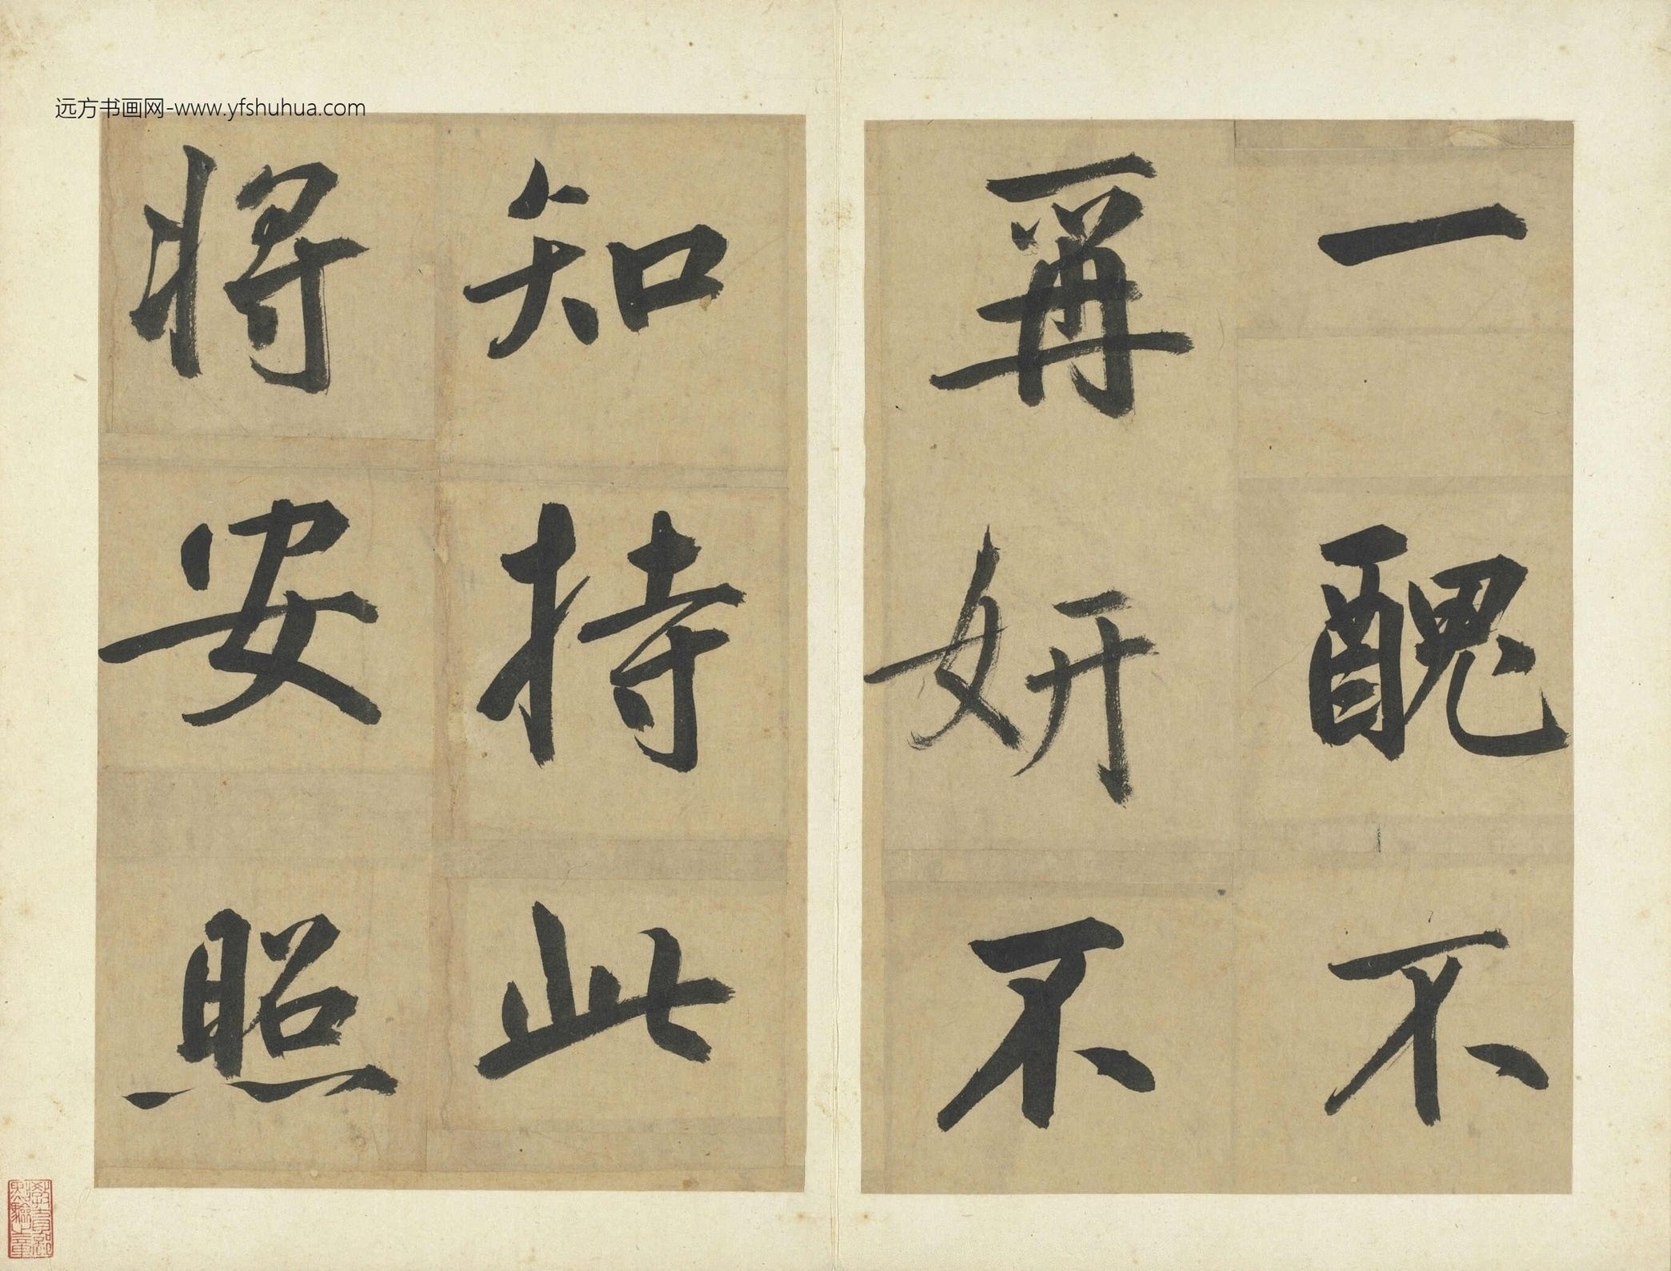 远方书画网-www.yfshuhua.com
一醜不
再妍不
知持此
将安照